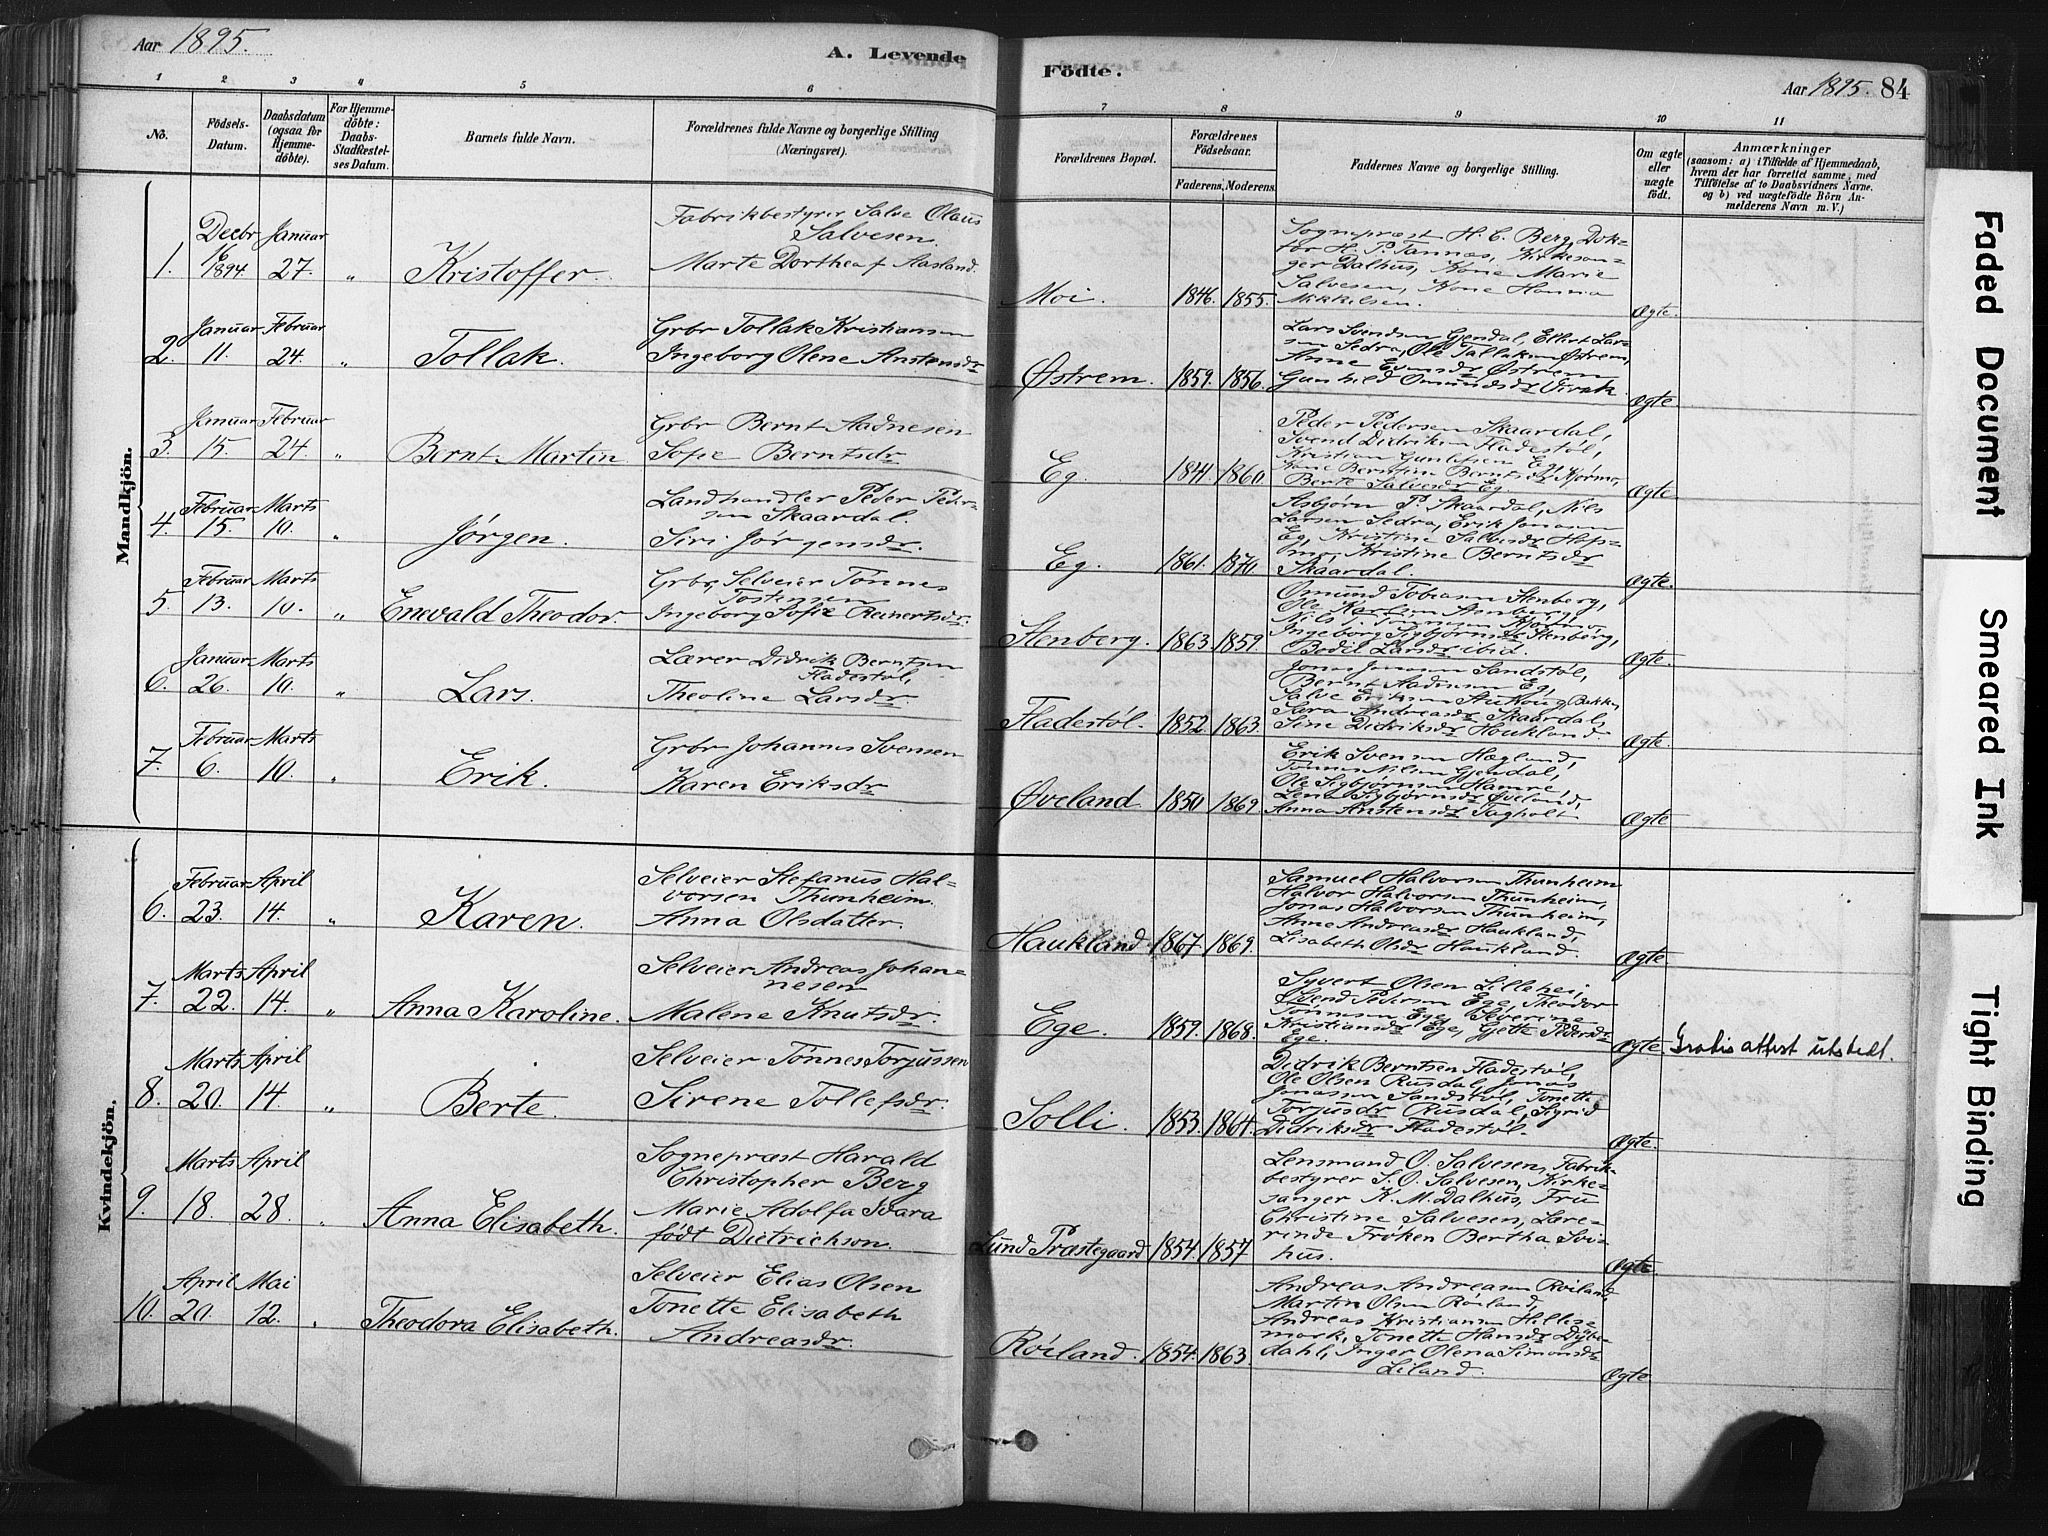 Aar 1895.
A. Levende Födte.
Aar 1895. 84
1 2 3 4 5 6 7 8 9 10 11
No.
Födsels-
Datum.
Daabsdatum
(ogsaa for
Hjemme-
döbte).
For Hjemme-
döbte:
Daabs-
Stadfæstel-
ses Datum.
Barnets fulde Navn.
Forældrenes fulde Navne og borgerlige Stilling
(Næringsvei).
Forældrenes Bopæl.
Forældrenes
Födselsaar.
Faderens. Moderens.
Faddernes Navne og borgerlige Stilling.
Om ægte
eller
uægte
födt.
Anmærkninger
(saasom: a) i Tilfælde af Hjemmedaab,
hvem der har forrettet samme, med
Tilföielse af to Daabsvidners Navne,
og b) ved uægtefödte Börn An-
melderens Navn m. V.)
Mandkjön.
1.
Decbr
6
1894
Januar
27.
"
Kristoffer.
Fabrikbestyrer Salve Olaus
Salvesen.
Marte Dorthea f. Aasland.
Moi.
1846. 1855.
Sogneprest H. C. Berg, Dok-
tor H. P. Tannæs, Kirkesan-
ger Dalhus, Kone Marie
Salvesen, Kone Hanna
Mikkelsen.
Ægte.
2.
Januar
11.
Februar
24.
"
Tollak.
Grbr Tollak Kristiansen
Ingeborg Olene Anstensdr
Østrem.
1859. 1856.
Lars Svendsen Gjendal, Eilert Lar-
sen Sedra, Ole Tallaksen Østrem,
Anne Østrem
Gunhild Omundsdr
Ægte.
3.
Januar
15.
Februar
24.
"
Bernt Martin
Grbr Bernt Aadnesen
Sofie Berntsdr
Eg.
1841. 1860.
Peder Pedersen Skaardal,
Svend Didriksen Fladestøl,
Kristian Gunlefsen Eg,
Kone Berntine Berntsdr
Berte Salvesdr Eg.
Ægte.
4.
Februar
15.
Marts
10.
"
Jørgen.
Landhandler Peder Peder-
sen Skaardal.
Siri Jørgensdr.
Eg.
1861. 1870.
Asbjørn P. Skaardal, Nils
Larsen Sedra, Erik Jonassen
Eg, Kristine Salvesdr
Kristine Berntsdr
Skaardal.
Ægte.
5.
Februar
13.
Marts
10.
"
Enevald Theodor.
Grbr, Selveier Tønnes
Tostensen
Ingeborg Sofie Reinertsdr.
Stenberg.
1863. 1859.
Omund Tobiassen Stenberg,
Ole Karlsen Stenberg,
Nils T. Tønnesen
Ingeborg Sigbjørnsdr Stenberg,
Bodil Larsdr ibid.
Ægte.
6.
Januar
26.
Marts
10.
"
Lars.
Lærer Didrik Berntsen
Fladestøl,
Theoline Larsdr.
Fladestøl.
1852. 1863.
Jonas Jonassen Sandstøl,
Bernt Aadnesen Eg,
Salve Eriksen
Sara Andreasdr Skaardal,
Sine Didriksdr Haukland.
Ægte.
7.
Februar
6.
Marts
10.
"
Erik.
Grbr Johannes Svensen
Karen Eriksdr
Øveland
1850 1869
Erik Svensen Hægland,
Tønnes Nilsen Gjendal,
Ole Sigbjørnsen Hamre,
Lena Sigbjørnsdr Øveland,
Anna Anstensdr Fagholt
Ægte
Kvindekjön.
6.
Februar
23.
April
14.
"
Karen.
Selveier Stefanus Hal-
vorsen Thunheim.
Anna Olsdatter.
Haukland
1867 1869.
Samuel Halvorsen Thunheim
Halvor Halvorsen Thunheim,
Jonas Halvorsen Thunheim,
Anne Andreasdr Haukland,
Lisabeth Olsdr Haukland.
Ægte.
7.
Marts
22.
April
14.
"
Anna Karoline.
Selveier Andreas Johan-
nesen
Malene Knutsdr.
Ege.
1859. 1868.
Syvert Olsen Lillehei,
Svend Pedersen Ege, Theodor
Tønnesen Ege, Severine
Kristiansdr Ege, Gjette Pedersdr
Ege.
Ægte.
Gratis attest utstedt.
8.
Marts
20.
April
14.
"
Berte.
Selveier Tønnes Torjussen
Sirene Tollefsdr.
Solli.
1853. 1864.
Didrik Berntsen Fladestøl,
Ole Olsen Rusdal, Jonas
Jonassen Sandstøl, Tonette
Torjusdr Rusdal, Sigrid
Didriksdr Fladestøl.
Ægte.
9.
Marts
18.
April
28.
"
Anna Elisabeth.
Sogneprest Harald
Christopher Berg
Marie Adolfa Svara
født Dietrichson.
Lund Præstegaard
1854. 1857
Lensmand O. Salvesen, Fabrik-
bestyrer S. O. Salvesen, Kirke-
sanger K. M. Dalhus, Fru
Christine Salvesen, Lære-
rinde Frøken Bertha Svi-
hus.
Ægte.
10.
April
20.
Mai
12.
"
Theodora Elisabeth.
Selveier Elias Olsen
Tonette Elisabeth
Andreasdr.
Røiland.
1854. 1863.
Andreas Andreasen Røiland,
Martin Olsen Røiland,
Andreas Kristiansen Helles-
mark, Tonette Hansdr Dybe-
dahl, Inger Olena Simonsdr
Liland.
Ægte
Faded Document
Smeared Ink
Tight Binding